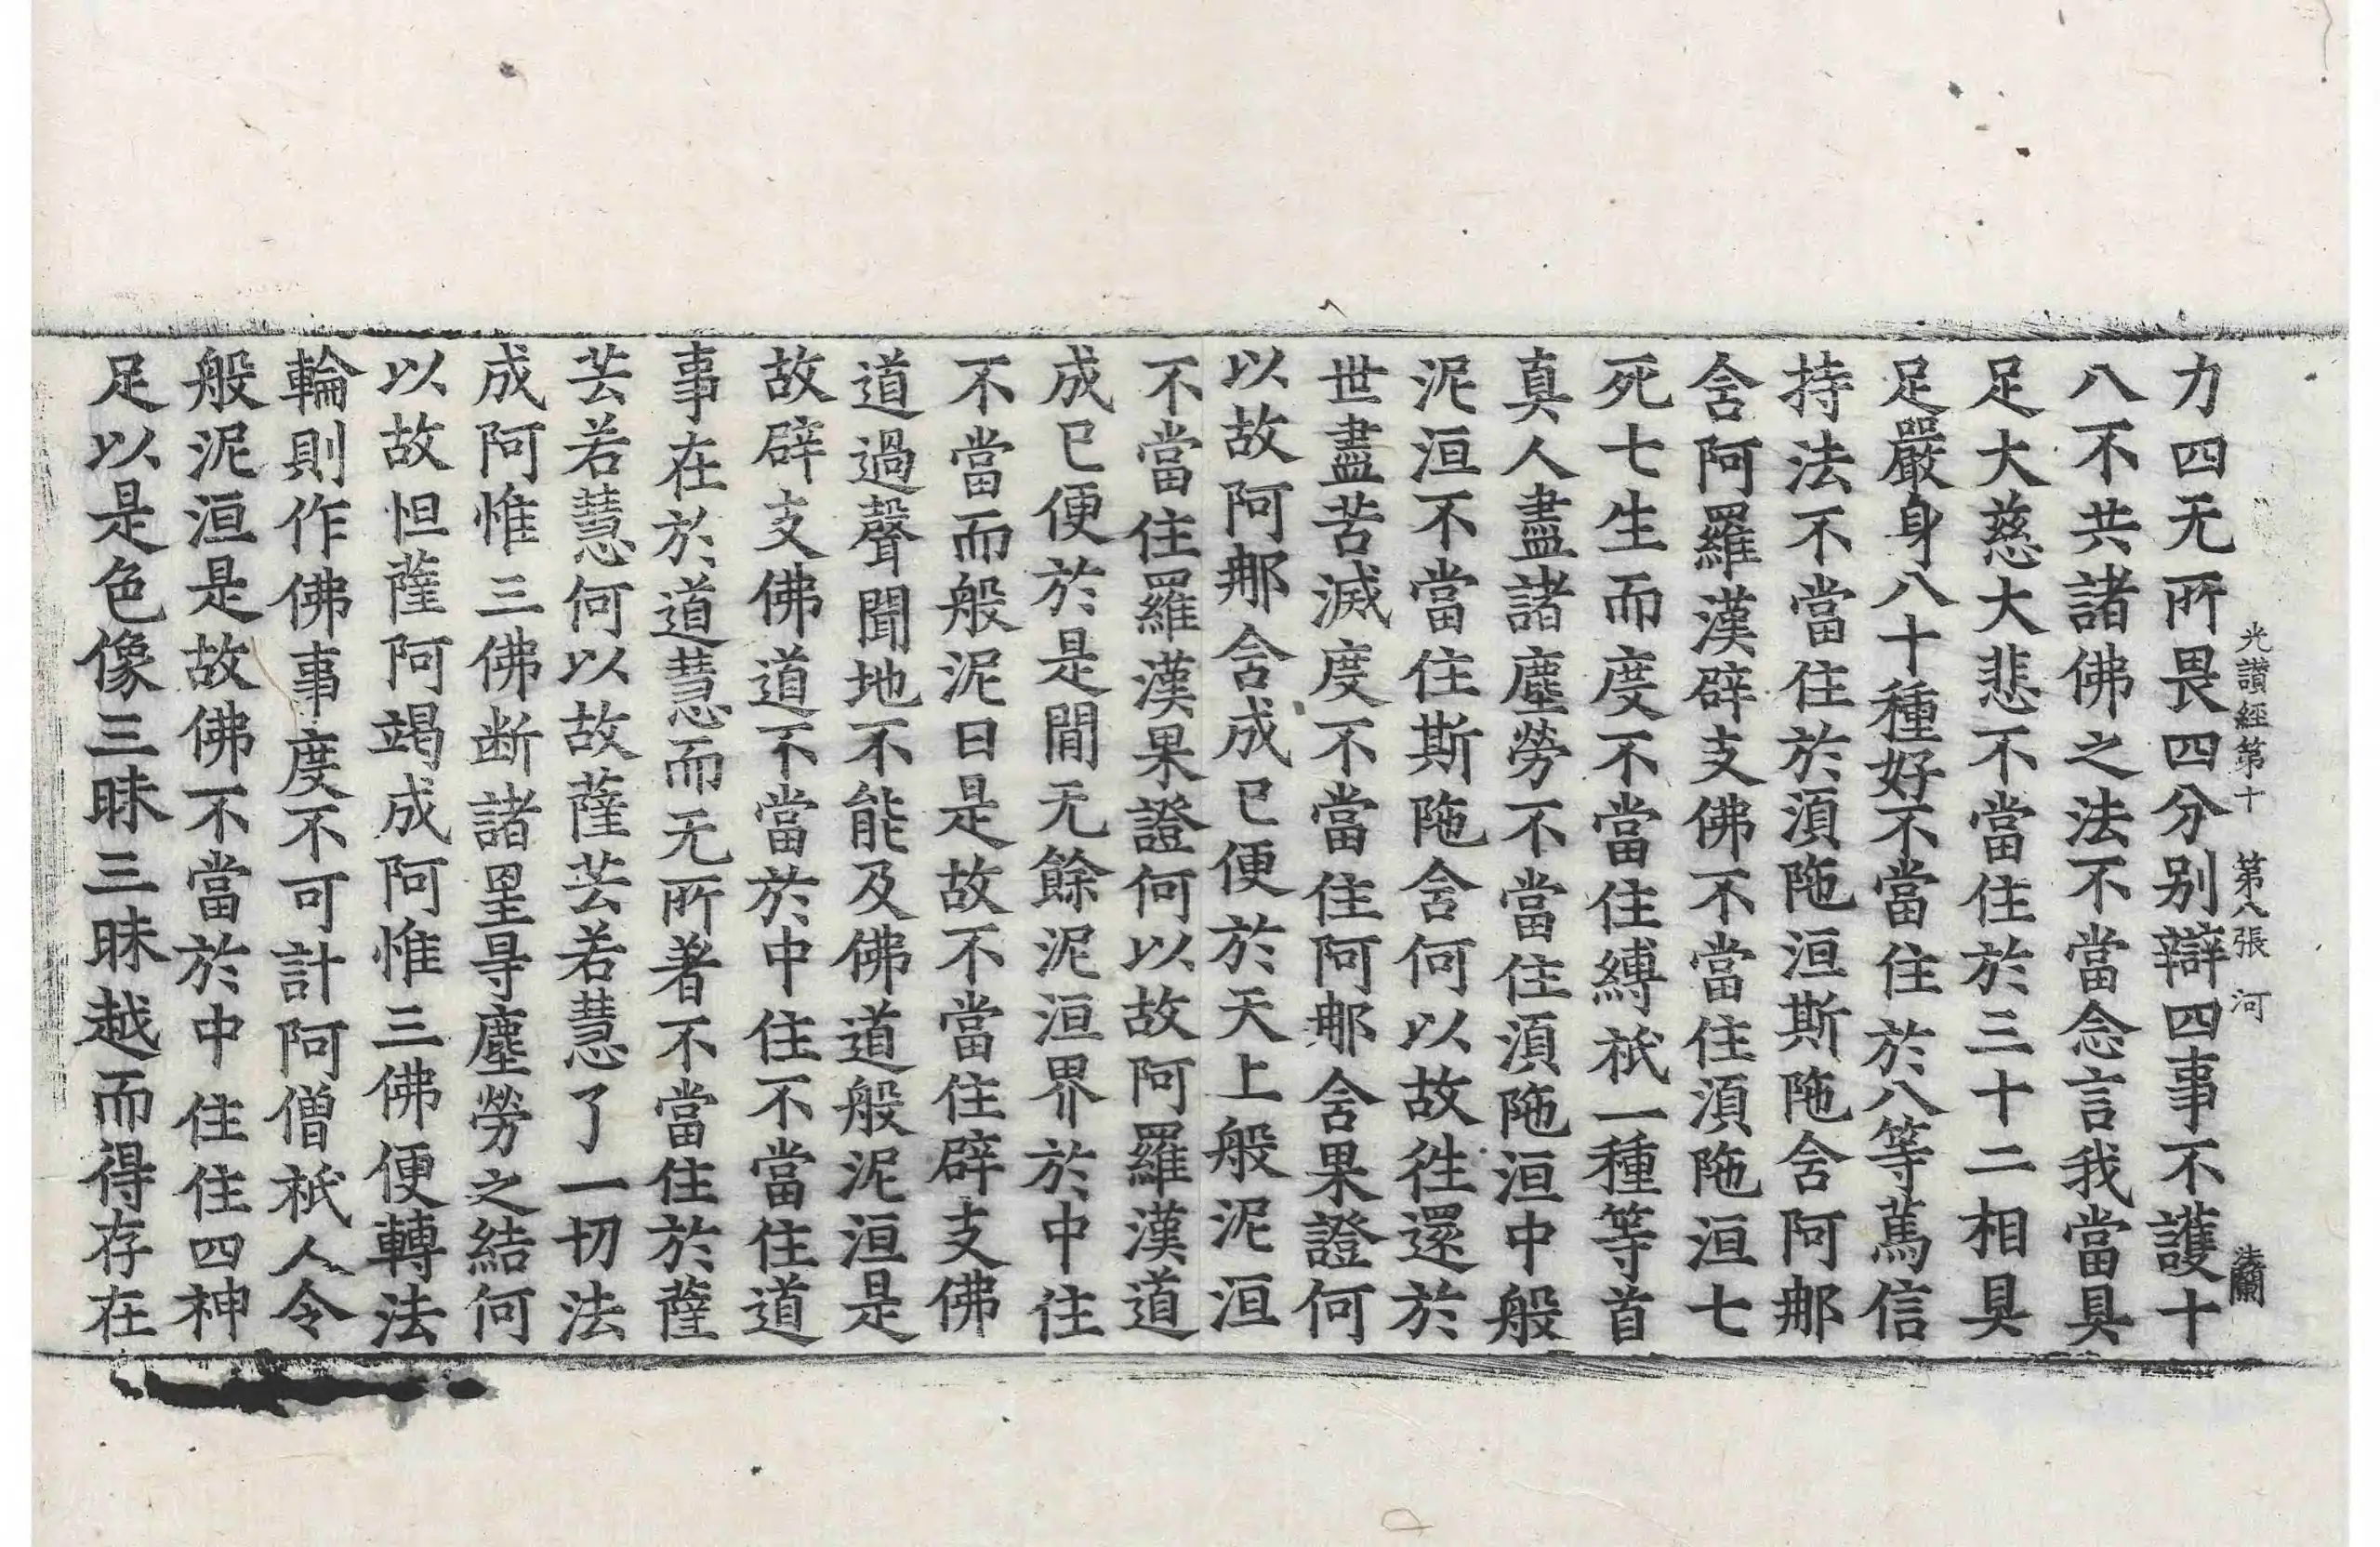 光讃經第十　第八張　河
力四无所畏四分别辯四事不護十
八不共諸佛之法不當念言我當具
足大慈大悲不當住於三十二相具
足嚴身八十種好不當住於八等篤信
持法不當住於湏陁洹斯陁含阿那
含阿羅漢辟支佛不當住湏陁洹七
死七生而度不當住縛祇一種等首
真人盡諸塵勞不當住湏陁洹中般
泥洹不當住斯陁含何以故徃還於
世盡苦滅度不當住阿那含果證何
以故阿那含成已便於天上般泥洹
不當住羅漢果證何以故阿羅漢道
成已便於是間无餘泥洹界於中住
不當而般泥曰是故不當住辟支佛
道過聲聞地不能及佛道般泥洹是
故辟支佛道不當於中住不當住道
事在於道慧而无所著不當住於薩
芸若慧何以故薩芸若慧了一切法
成阿惟三佛断諸罣㝵塵勞之結何
以故怛薩阿竭成阿惟三佛便轉法
輪則作佛事度不可計阿僧祇人令
般泥洹是故佛不當於中住住四神
足以是色像三昧三昧越而得存在